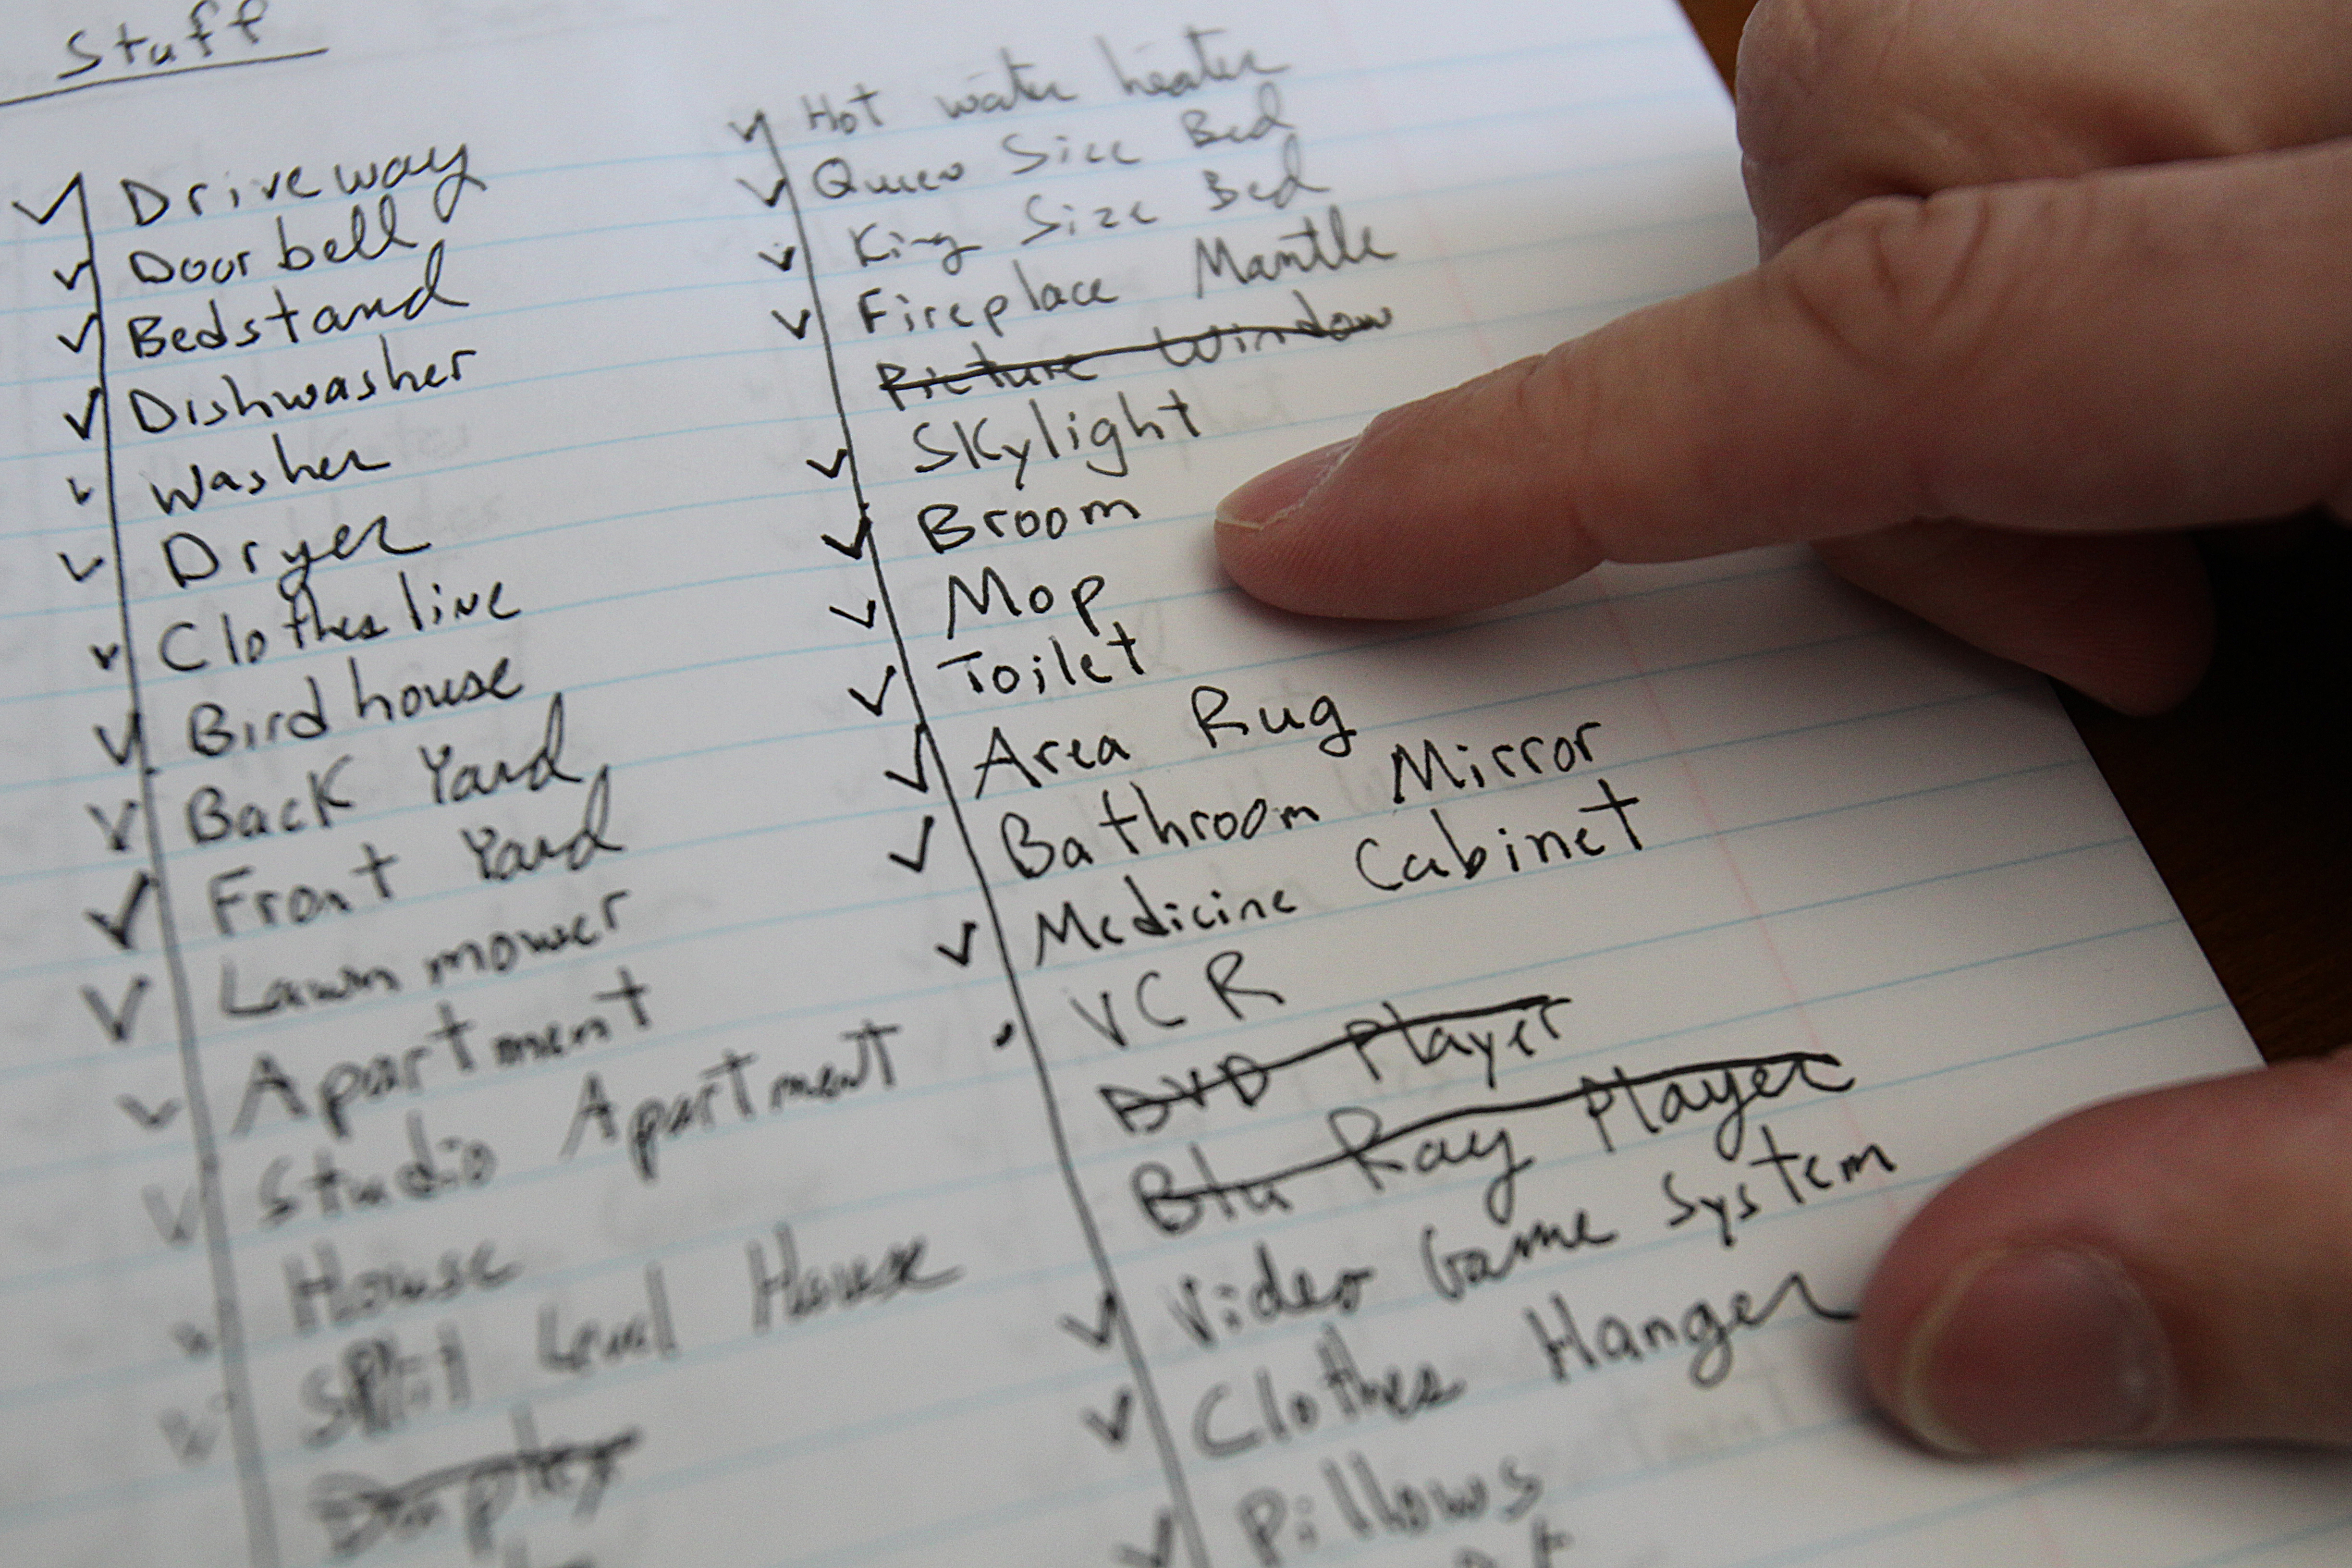 Stuff
Driveway
Doorbell
Bedstand
Dishwasher
Washer
Dryer
Clothes line
Bird house
Back Yard
Front Yard
Lawn mower
Apartment
Studio Apartment
House
Split Level House
Duplex
Hot water heater
Queen Size Bed
King Size Bed
Fireplace Mantle
Picture Window
Skylight
Broom
Mop
Toilet
Area Rug
Bathroom Mirror
Medicine Cabinet
VCR
DVD Player
Blu Ray Player
Video Game System
Clothes Hanger
Pillows